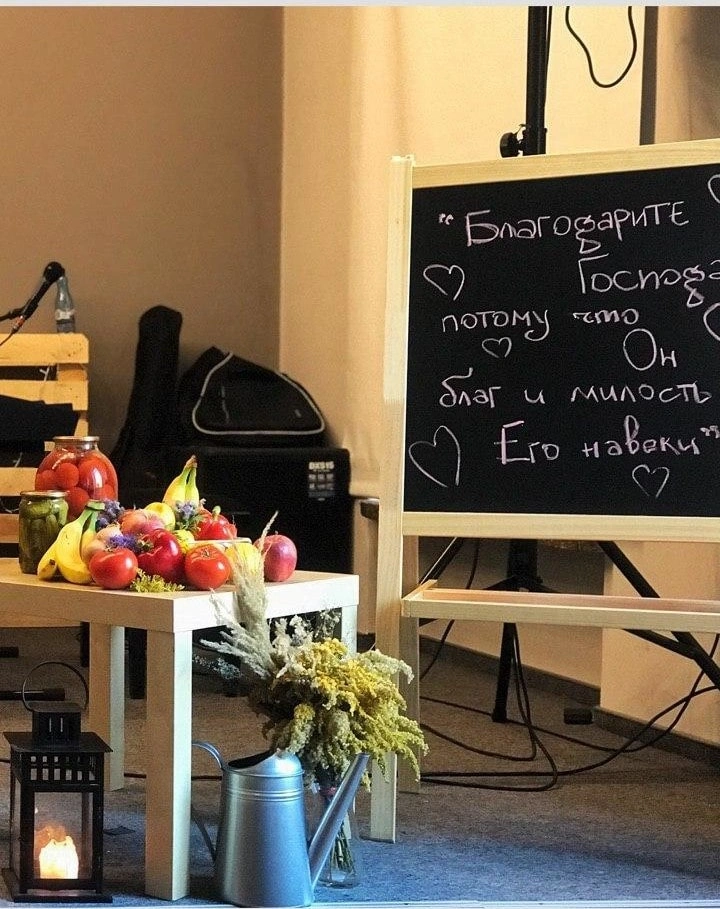 "Благодарите
Господа
потому что
Он
благ и милость
Его навеки"
DXS15